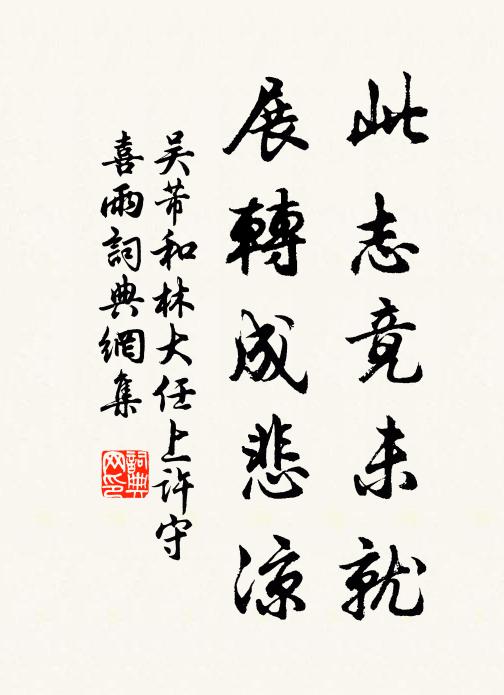 此志竟未就
展轉成悲涼
吳芾和林大任上許守
喜雨詞典網集
詞典
网印